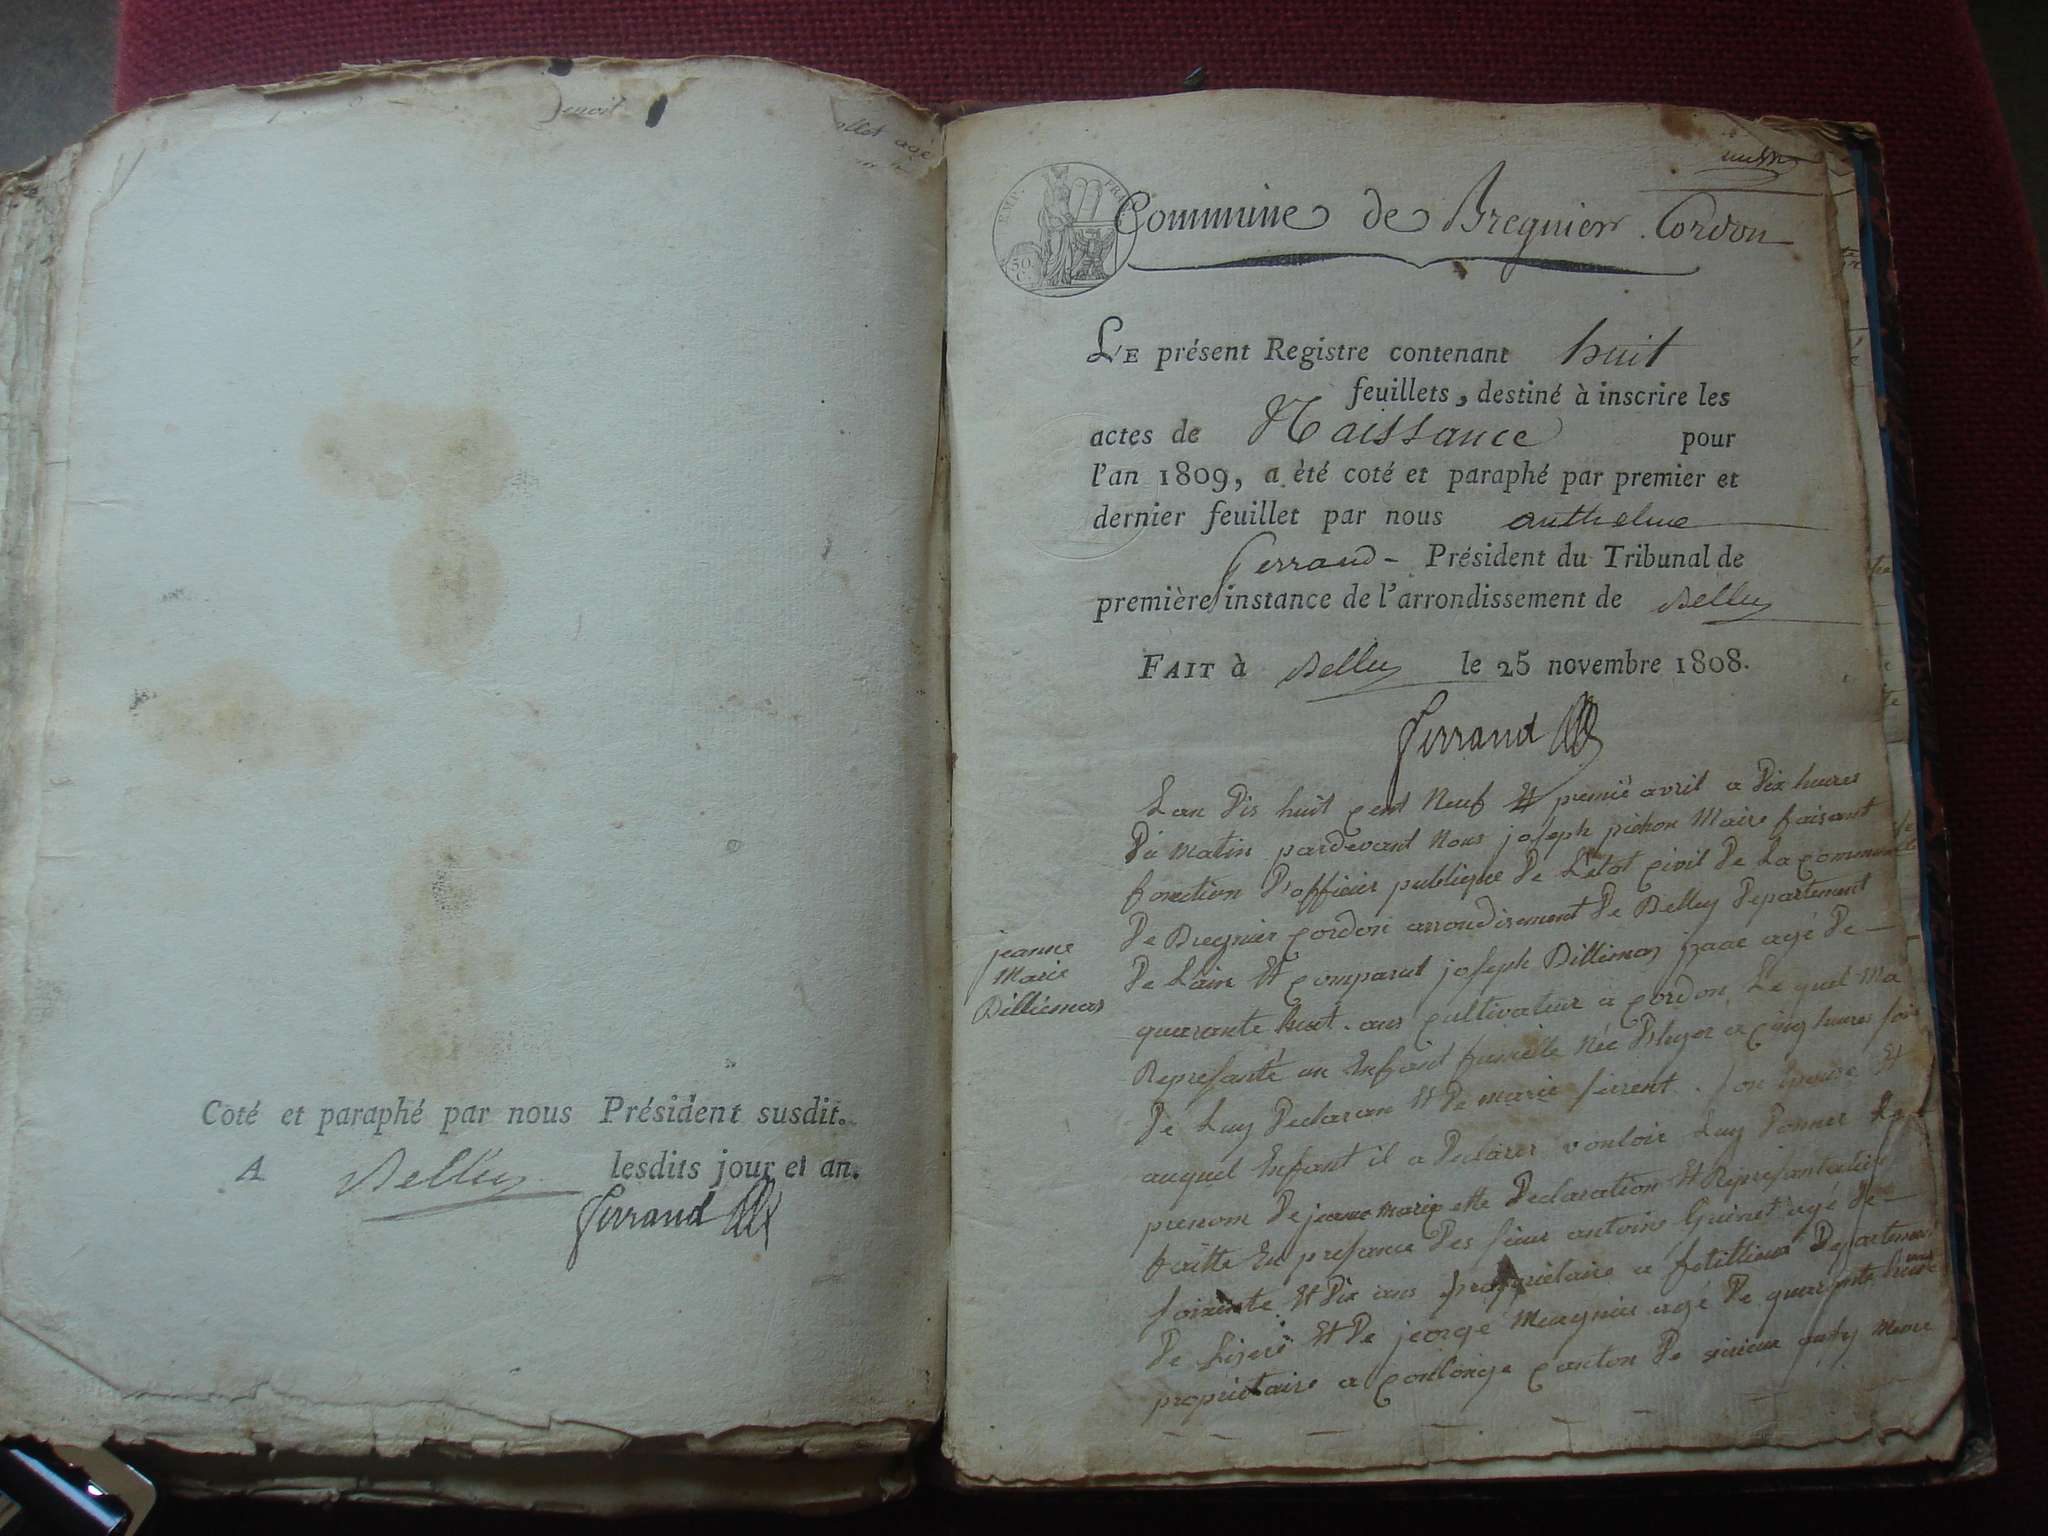 Benoit
Coté et paraphé par nous Président susdit.
A Belley lesdits jour et an.
Ferrand
EMP. FRA
50 C.
Commune de Bregnier Cordon
LE présent Registre contenant huit
feuillets, destiné à inscrire les
actes de Naissance pour
l'an 1809, a été coté et paraphé par premier et
dernier feuillet par nous anthelme
Ferrand - Président du Tribunal de
première instance de l'arrondissement de Belley
FAIT à Belley le 25 novembre 1808.
Ferrand
jeanne
Marie
Billiemas
Lan Dis huit cent Neuf Et premié avril a Dix heures
Du Matin pardevant Nous joseph pichon Maire faisant
fonction D'officier publique De L'etat civil De La commune
De Bregnier cordon arrondisement De Belley Departement
De L'ain Et comparut joseph Billiemas izaac agé De
quarante huit ans cultivateur a cordon Le quel Ma
Represanté un Enfant fumelle Née a cinq heures soir
De Luy Declaran Et De marie Et
auquel Enfant il a Declarer vouloir Luy Donner Le
prenom De jeanne Marie Declaration Et Represantation
faitte En presance Des sieur antoine Guinet agé De
soixente Et Dix ans propriétaire a Departement
De Lisere Et De jeorge Meugnier agé De quarante
propriétaire a conlonge canton De